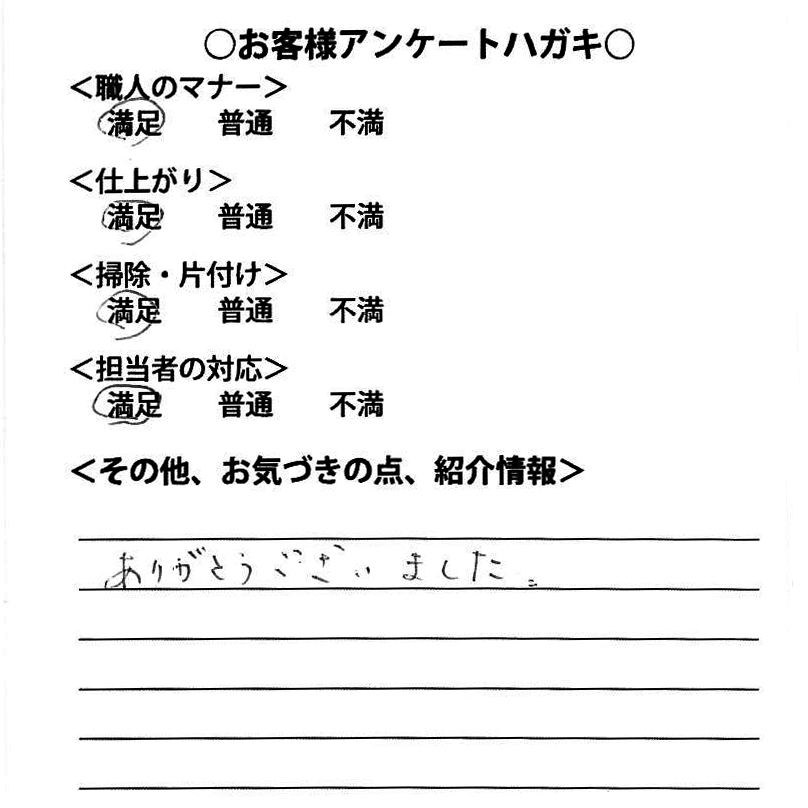 ○お客様アンケートハガキ○
＜職人のマナー＞
満足 普通 不満
＜仕上がり＞
満足 普通 不満
＜掃除・片付け＞
満足 普通 不満
＜担当者の対応＞
満足 普通 不満
＜その他、お気づきの点、紹介情報＞
ありがとうございました。